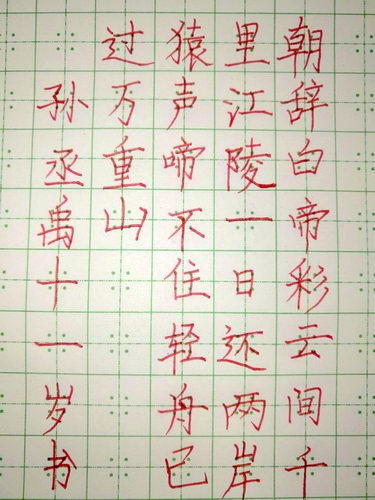 朝辞白帝彩云间千
里江陵一日还两岸
猿声啼不住轻舟已
过万重山
孙丞禹十一岁书